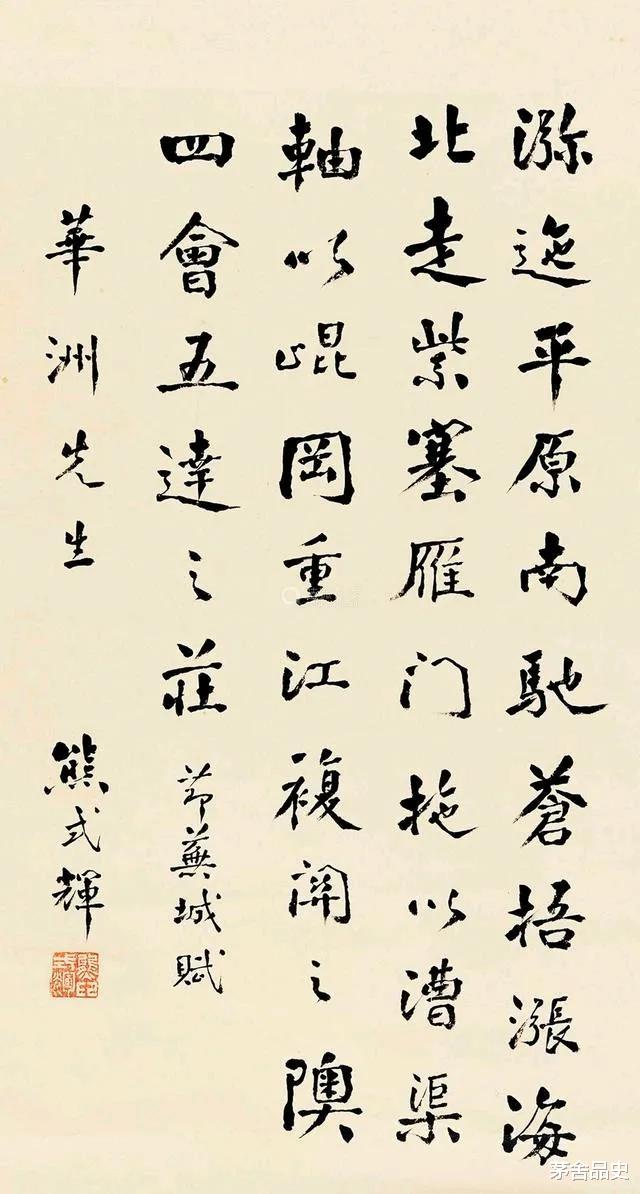 沵迤平原南馳蒼梧漲海
北走紫塞雁门拖以漕渠
軸以崐岡重江複關之隩
四會五達之莊 節蕪城賦
華洲先生
熊式輝
茅舍品史